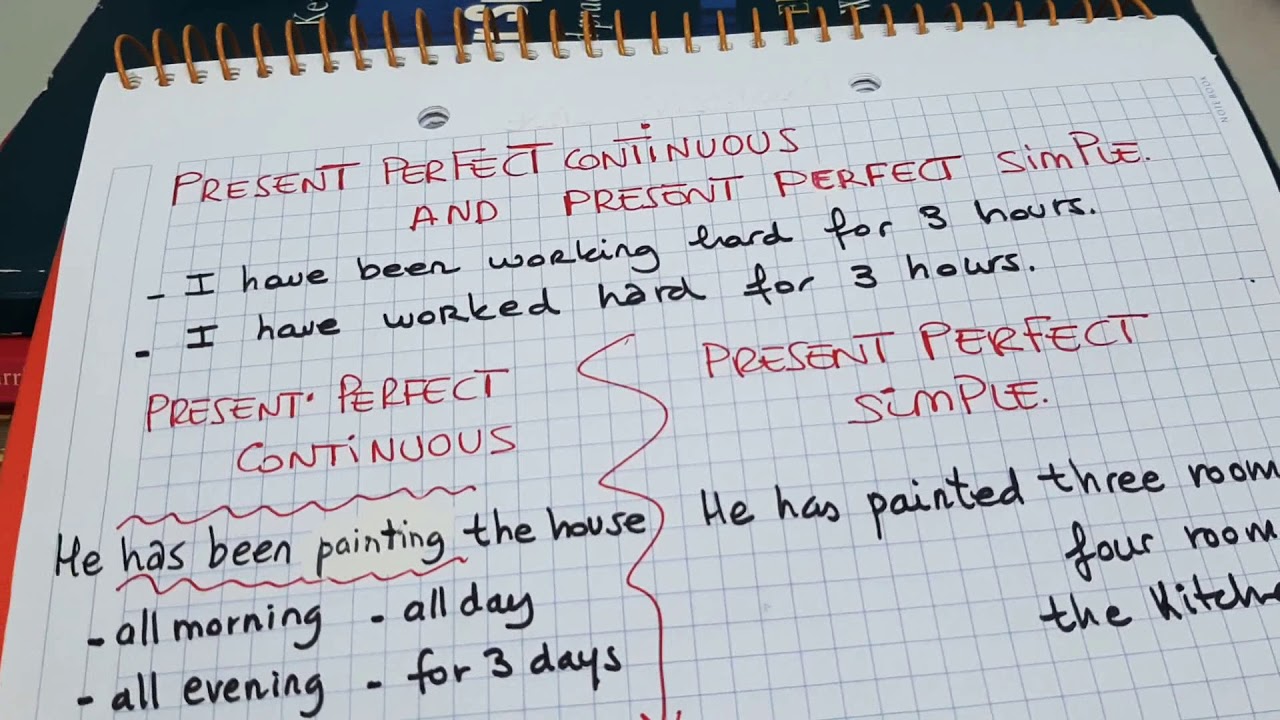 PRESENT PERFECT CONTINUOUS
AND PRESENT PERFECT SIMPLE.
- I have been working hard for 3 hours.
- I have worked hard for 3 hours.
PRESENT PERFECT
CONTINUOUS
He has been painting the house
- all morning - all day
- all evening - for 3 days
PRESENT PERFECT
SIMPLE.
He has painted three room
four room
the Kitche